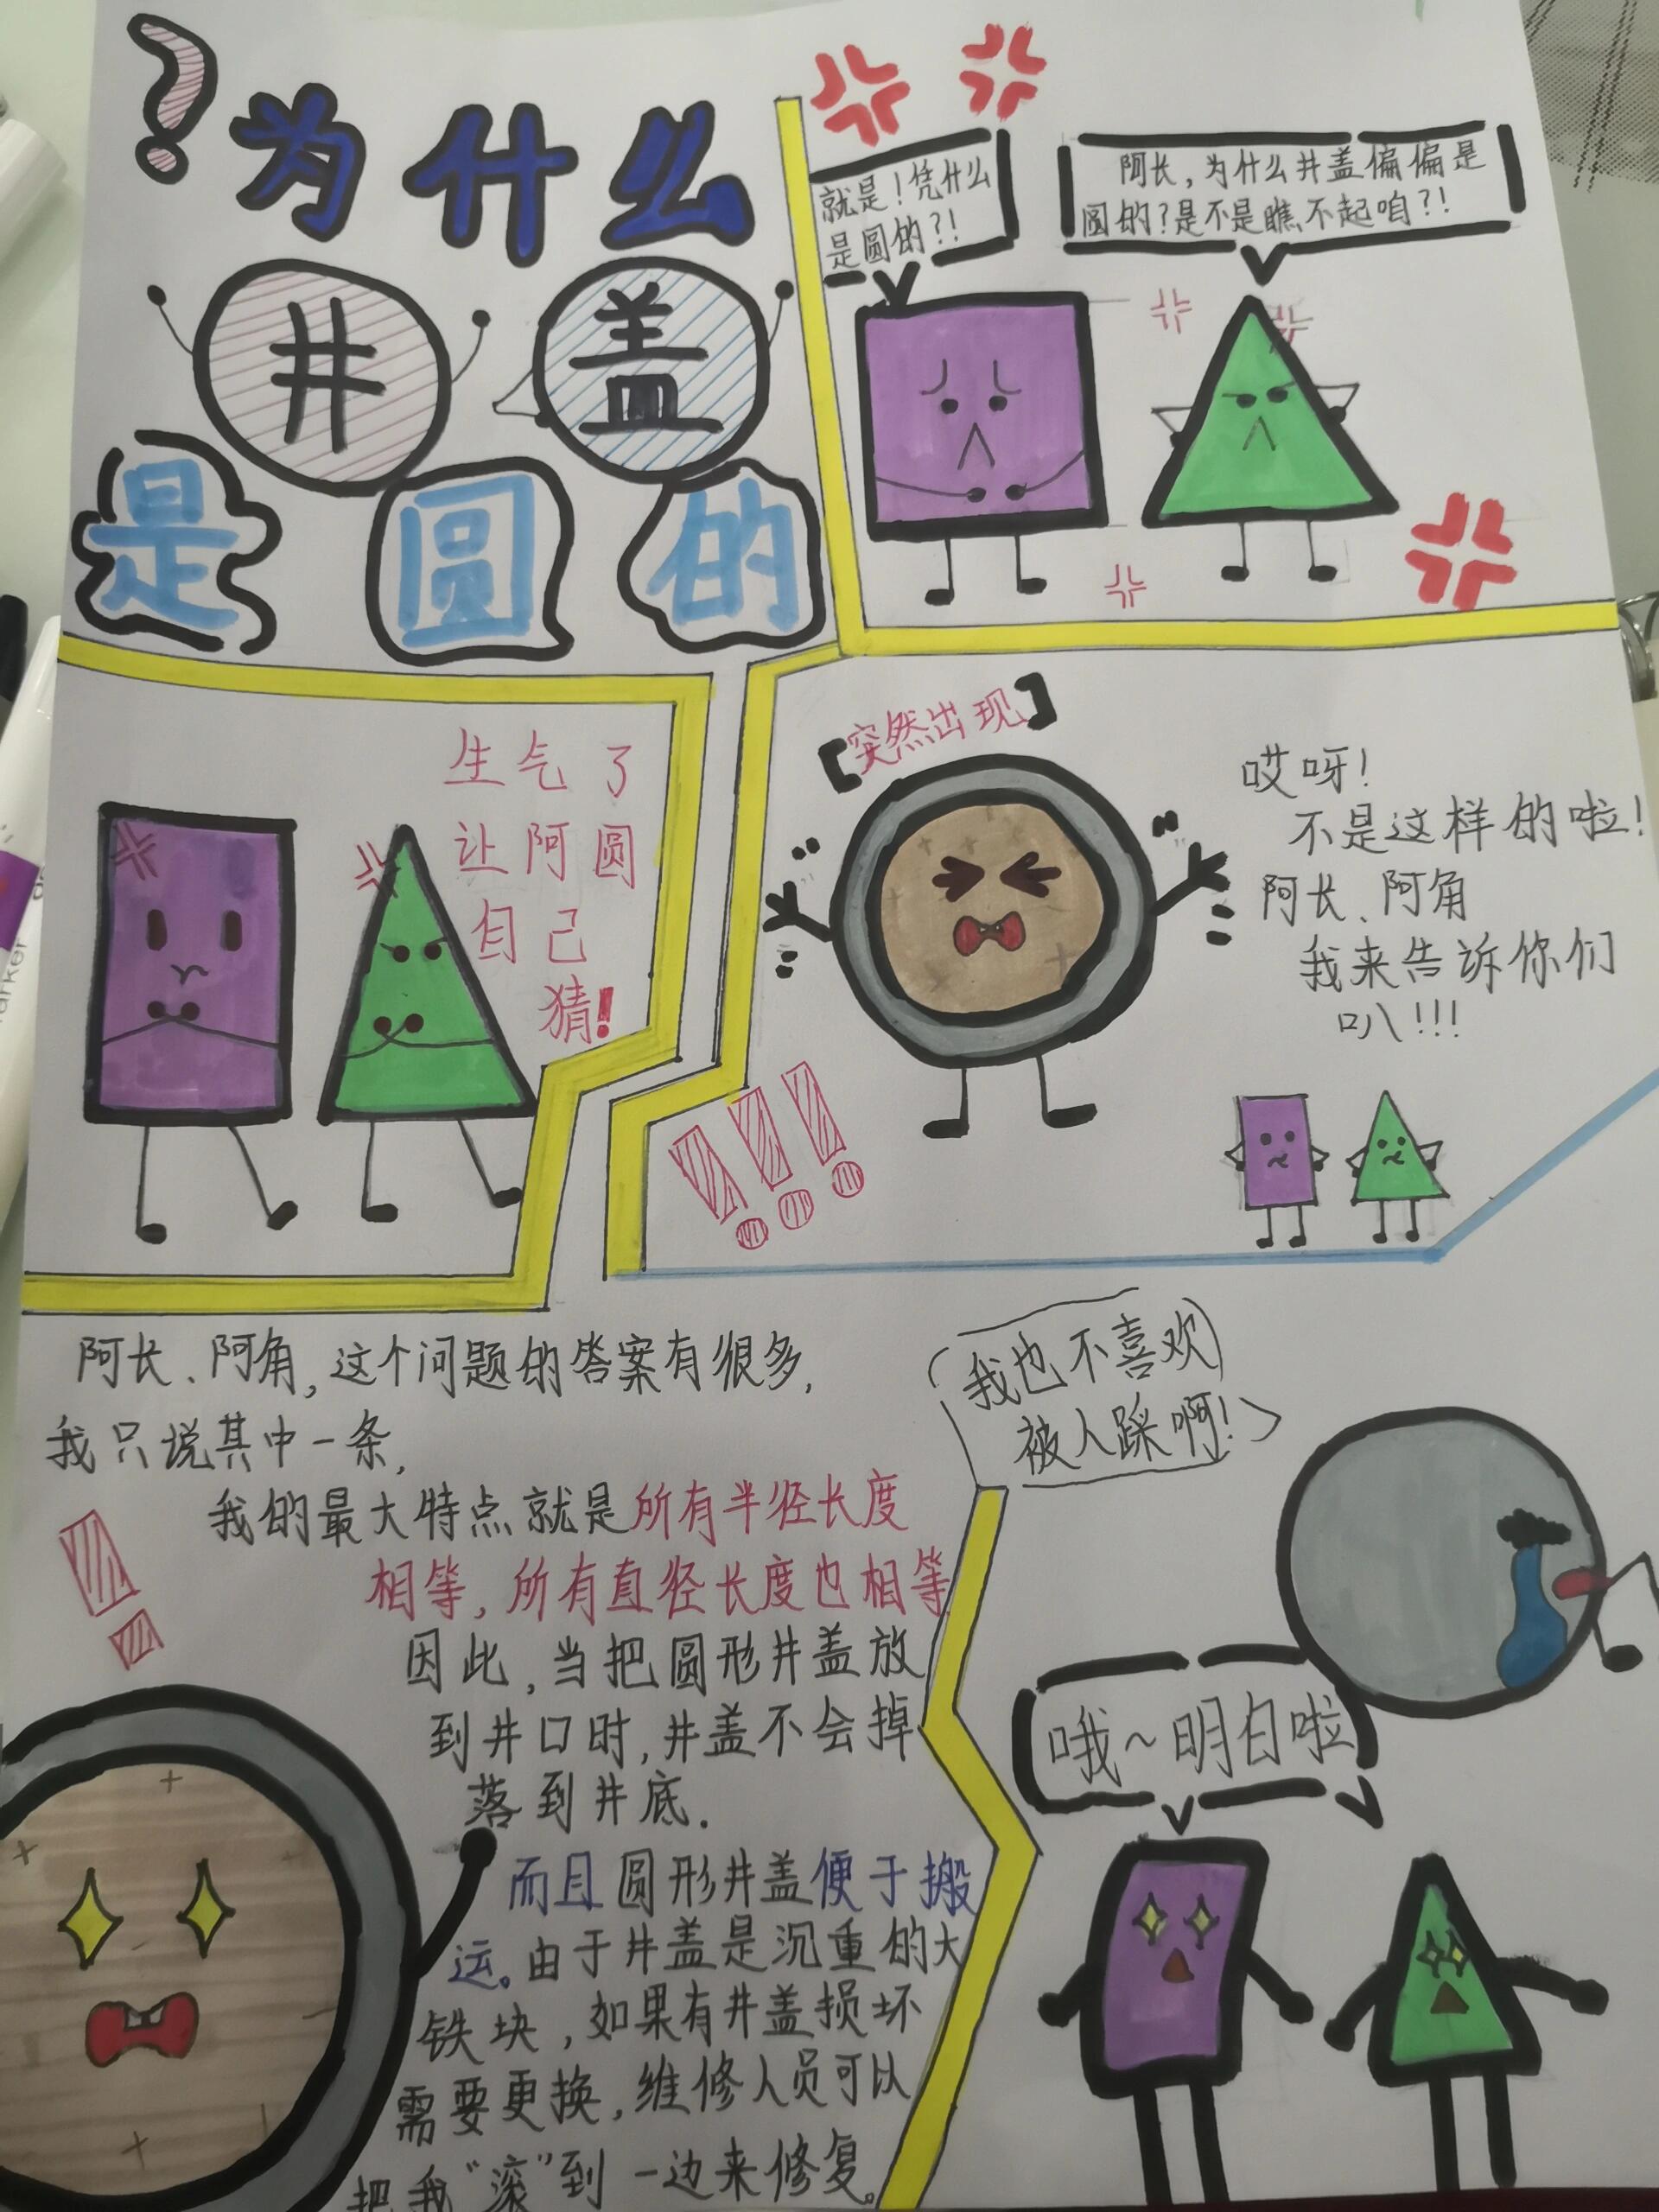 ？为什么
井盖
是圆的
就是！凭什么
是圆的？！
阿长，为什么井盖偏偏是
圆的？是不是瞧不起咱？！
生气了
让阿圆
自己
猜！
【突然出现】
哎呀！
不是这样的啦！
阿长、阿角
我来告诉你们
叭！！！
！！！
阿长、阿角，这个问题的答案有很多，
我只说其中一条，
我的最大特点就是所有半径长度
相等，所有直径长度也相等
因此，当把圆形井盖放
到井口时，井盖不会掉
落到井底．
而且圆形井盖便于搬
运。由于井盖是沉重的大
铁块，如果有井盖损坏
需要更换，维修人员可以
把我“滚”到一边来修复。
！
我也不喜欢
被人踩啊！
哦~明白啦